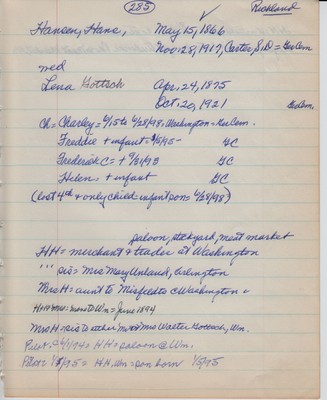 285
Richland
Hansen, Hans, May 15, 1866
Nov. 28, 1917, Custer, S.D = Ger Cem
wed
Lena Gottsch Apr. 24, 1875
Oct. 20, 1921 Ger Cem.
Ch = Charley = 2/15 to 4/28/98, Washington = Ger Cem.
Freddie + infant = 95- GC
Frederick C = + 9/31/93 GC
Helen + infant GC
(lost 4th & only child infant son = 4/28/98)
saloon, stockyard, meat market
HH = merchant & trader at Washington
''' sis = Mrs Mary Unland, Arlington
Mrs H = aunt to Misfeldts @ Washington
H = moved to Wn = June 1894
Mrs H = sis to either Mr or Mrs Walter Gottsch, Wn.
Pilot = 94 = HH = saloon @ Wn.
Pilot = 1/5/95 = HH, Wn = son born 1/5/95